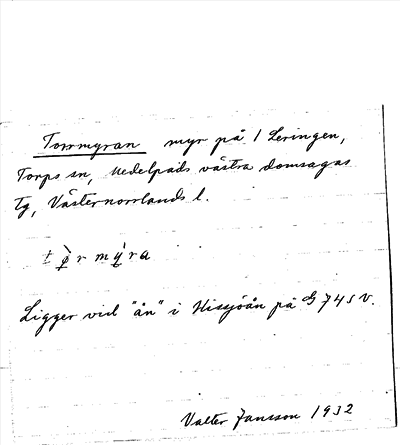 Torrmyran myr på 1 Leringen,
Torps sn, Medelpads västra domsagas
tg, Västernorrlands l.
t ø̀ r m ý r a
Ligger vid "ån" i Hissjöån på G 745 V.
Valter Jansson 1932